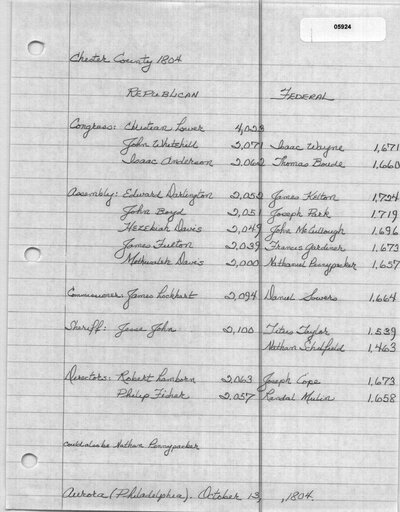 05924
Chester County 1804
Republican Federal
Congress: Christian Lower 4,023
John Whitehill 2,071 Isaac Wayne 1,671
Isaac Anderson 2,062 Thomas Boude 1,660
Assembly: Edward Darlington 2,052 James Kelton 1,724
John Boyd 2,051 Joseph Park 1,719
Hezekiah Davis 2,049 John McCullough 1,696
James Fulton 2,039 Francis Gardner 1,673
Methuselah Davis 2,000 Nathaniel Pennypacker 1,657
Commissioner: James Lockhart 2,094 Daniel Sowers 1,664
Sheriff: Jesse John 2,100 Titus Taylor 1,539
Nathan Scholfield 1,463
Directors: Robert Lamborn 2,063 Joseph Cope 1,673
Philip Fisher 2,057 Randal Mulin 1,658
could also be Nathan Pennypacker
Aurora (Philadelphia). October 13, 1804.